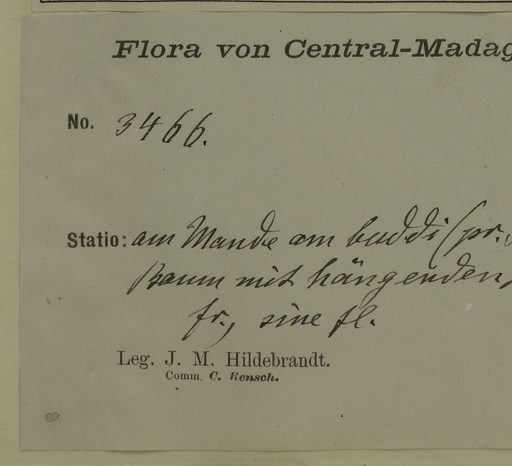 Flora von Central-Madag
No. 3466.
Statio: am Mande am buddi (pr.
Baum mit hängenden,
fr., sine fl.
Leg. J. M. Hildebrandt.
Comm. C. Rensch.